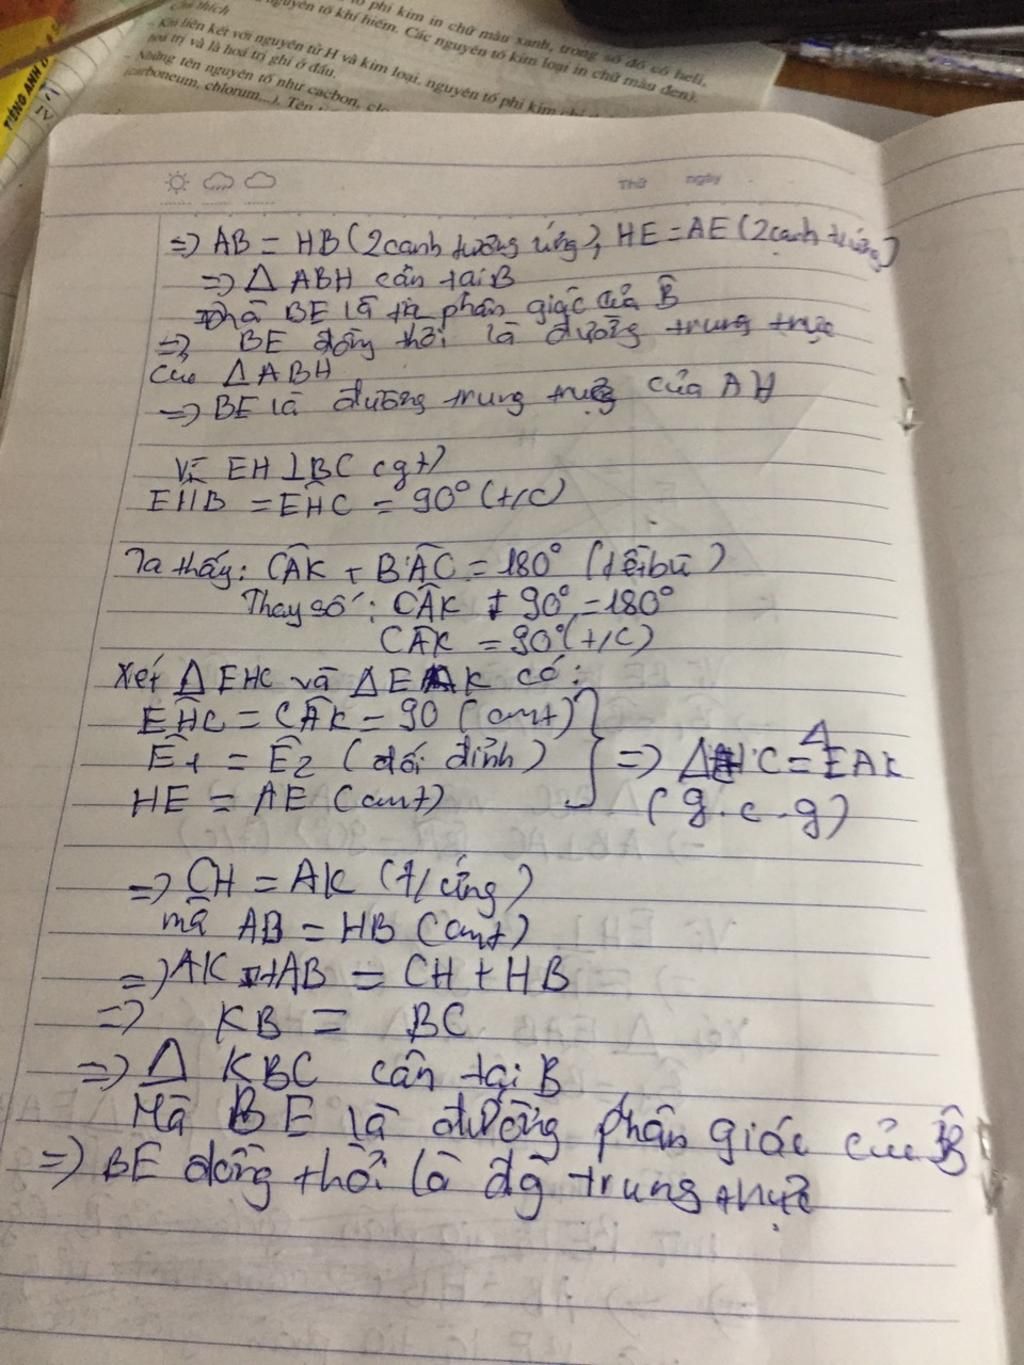 tố phi kim in chữ màu xanh, trong số đó có heli,
nguyên tố khí hiếm. Các nguyên tố kim loại in chữ màu đen).
Chú thích
- Khi liên kết với nguyên tử H và kim loại, nguyên tố phi kim chỉ
hoá trị và là hoá trị ghi ở đầu.
- Những tên nguyên tố như cacbon, clo
(carboneum, chlorum...). Tên
TIẾNG ANH
IV
Thứ ngày
=> AB = HB (2 cạnh tương ứng), HE = AE (2 cạnh tứ ứng)
=> Δ ABH cân tại B
mà BE là tia phân giác của B̂
=> BE đồng thời là đường trung trực
của ΔABH
=> BE là đường trung trực của AH
Vì EH ⊥ BC (gt)
EĤB = EĤC = 90° (t/c)
Ta thấy: CÂK + BÂC = 180° (kề bù)
Thay số: CÂK + 90° = 180°
CÂK = 90° (t/c)
Xét Δ EHC và ΔEAK có:
EĤC = CÂK = 90 (cmt)
Ê1 = Ê2 (đối đỉnh)
HE = AE (cmt)
=> ΔEHC = ΔEAK
(g.c.g)
=> CH = AK (t/ứng)
mà AB = HB (cmt)
=> AK + AB = CH + HB
=> KB = BC
=> Δ KBC cân tại B
Mà BE là đường phân giác của B̂
=> BE đồng thời là đg trung trực